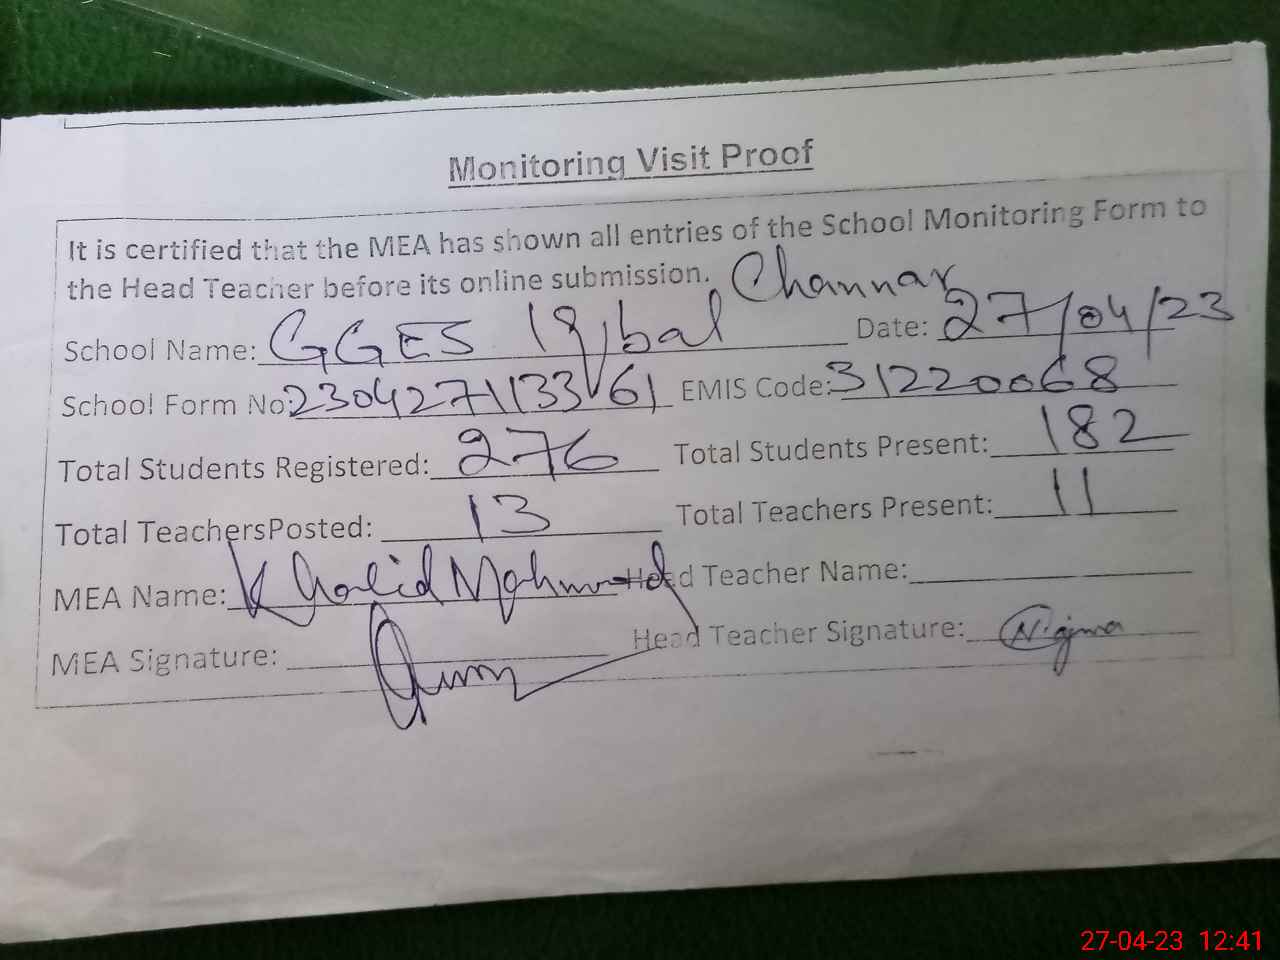 Monitoring Visit Proof
It is certified that the MEA has shown all entries of the School Monitoring Form to
the Head Teacher before its online submission.
School Name: GGES Iqbal Channar Date: 27/04/23
School Form No: 230427113361 EMIS Code: 31220068
Total Students Registered: 276 Total Students Present: 182
Total TeachersPosted: 13 Total Teachers Present: 11
MEA Name: Khalid Mahmood Head Teacher Name:
MEA Signature: Head Teacher Signature: Najma
27-04-23 12:41